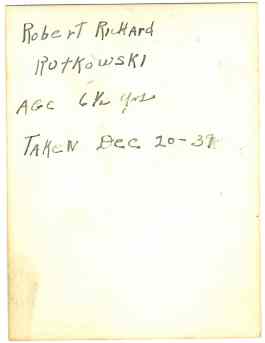 Robert Richard
Rutkowski
AGE 6½ yrs
TAKEN DEC 20-39